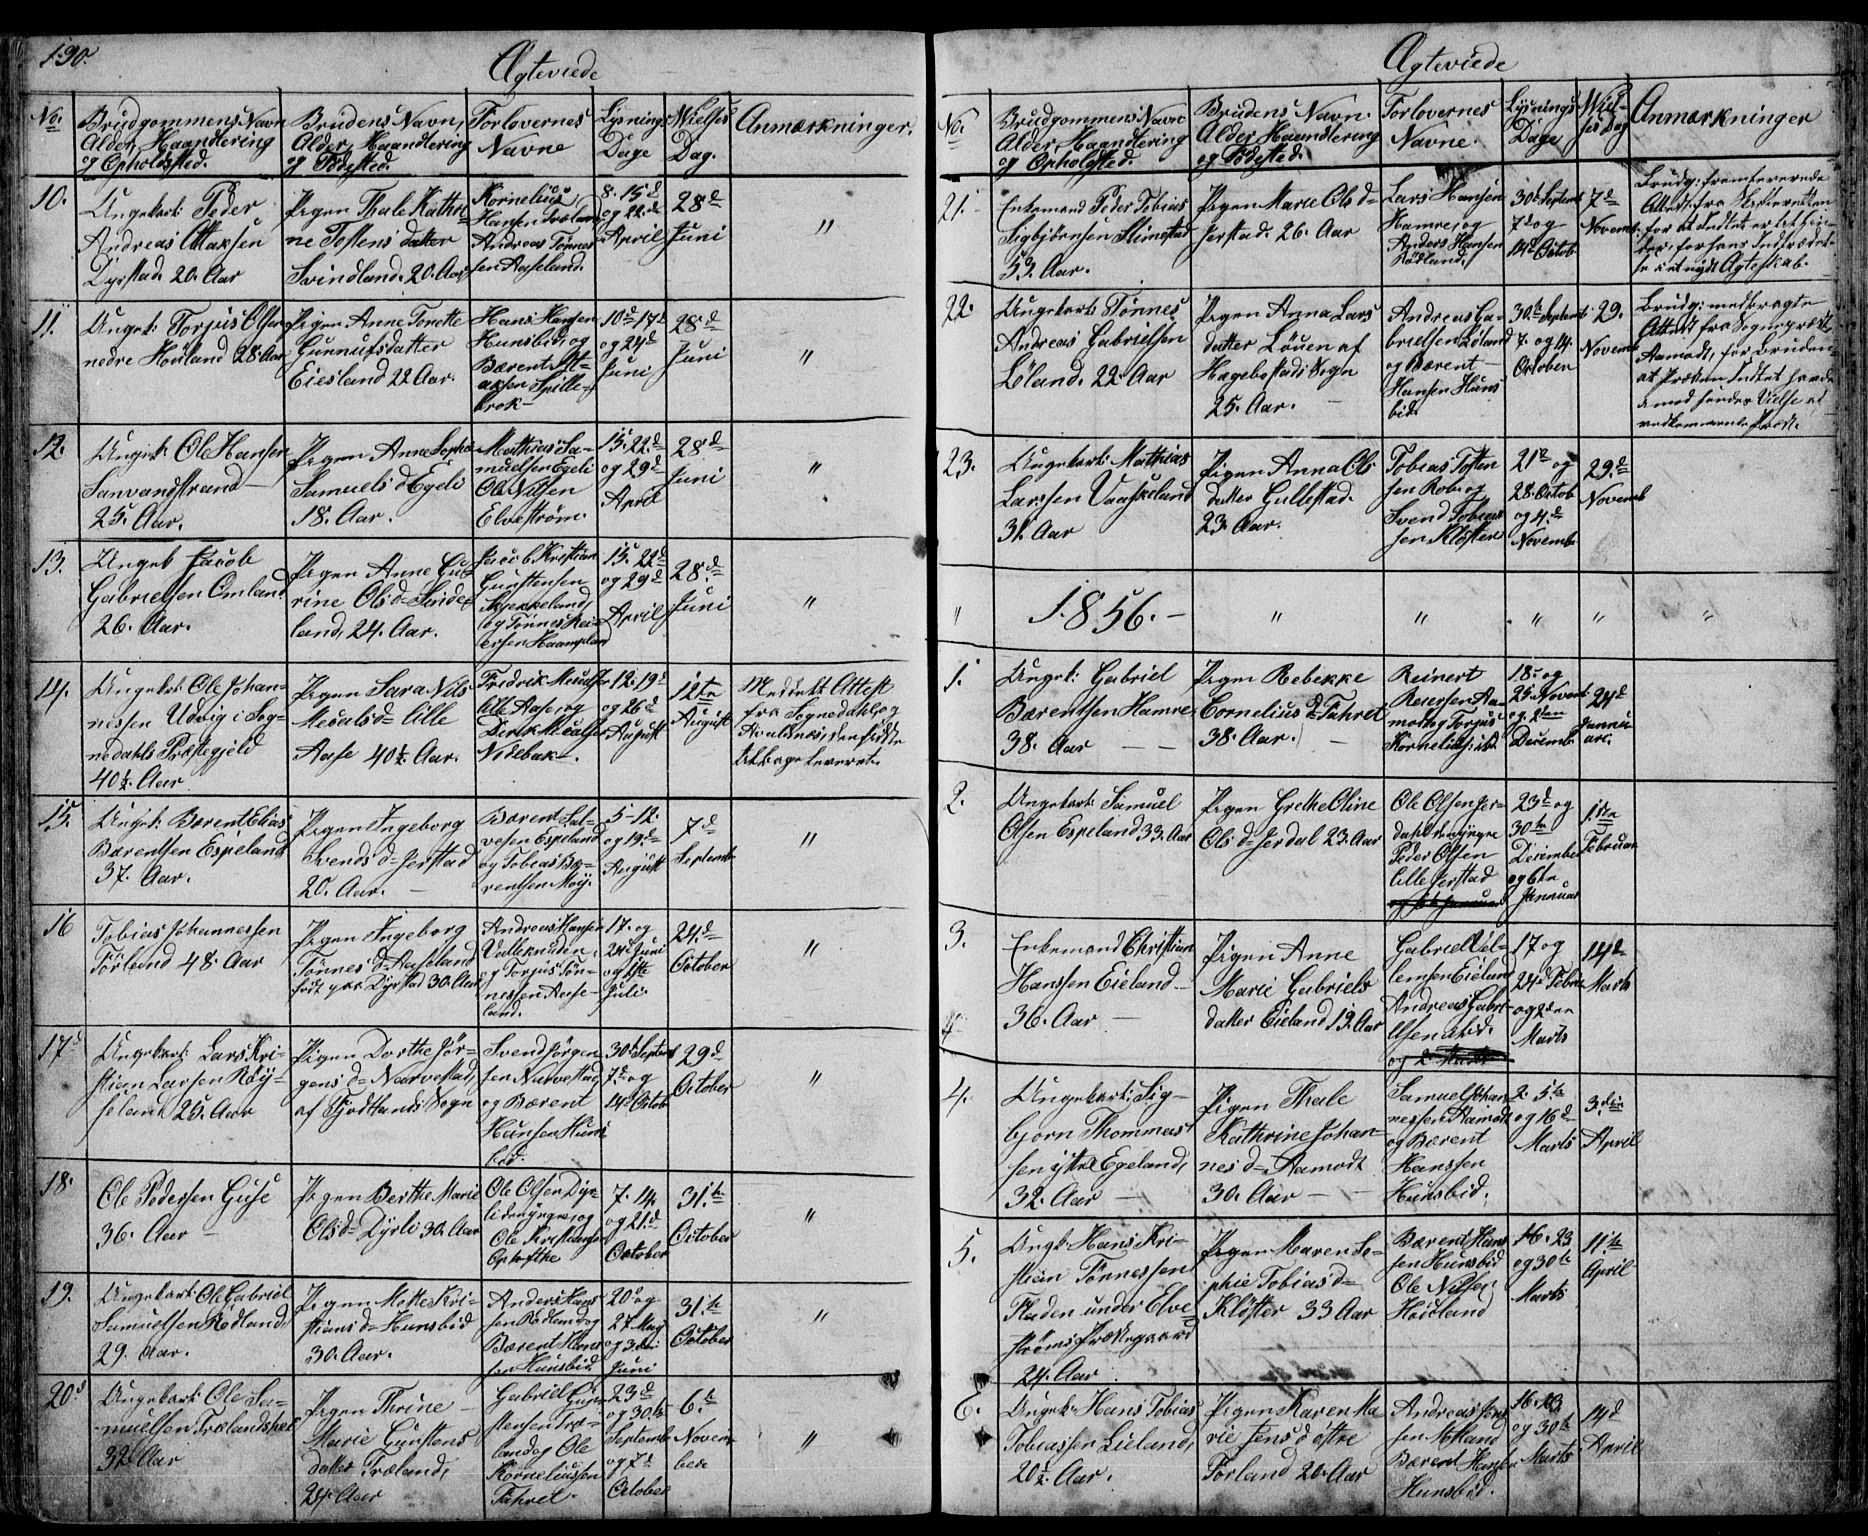 190.
Ægteviede
No.
Brudgommens Navn
Alder, Haandtering
og Opholdssted.
Brudens Navn,
Alder, Haandtering
og Fødested.
Forlovernes
Navne
Lysnings
Dage
Vielses
Dag.
Anmærkninger.
10.
Ungekarl: Peder
Andreas
Dyrstad. 20. Aar
Pigen Thale Kathri-
ne Tostens datter
Svindland. 20. Aar
Kornelius
Hansen Træland
Andreas Tønnes
sen Aaseland.
8. 15.d
og 22.d
April
28.d
Juni
"
11.
Ungek: Torjus Olsen
nedre Houland 28. Aar
Pigen Anne Tonette
Gunnufsdatter
Eiesland 22 Aar.
Hans Hansen
Hunsbid, og
Bærent
10.d 17.d
og 24.d
Juni
28.d
Juni
"
12.
Ungek: Ole Hansen
Sanvandstrand
25. Aar.
Pigen Anne Sophie
Samuels d. Egeli
18. Aar.
Mathias Sa-
muelsen Egeli
Ole Nilsen
Elvestrøm.
15. 22.d
og 29.d
April
28.d
Juni
"
13.
Ungek Jacob
Gabrielsen Omland
26. Aar.
Pigen Anne Gu-
rine Ols d. Sinde
land, 24. Aar.
Jacob Kristian
Gunstensen
Skjekkeland,
og Tønnes Rei-
ersen
15. 22.d
og 29.d
April
28.d
Juni
"
14.
Ungekrl: Ole Johan-
nessen Udvig i Sog-
nedahls Præstegjeld
40½ Aar
Pigen Sara Nils
Micals d. lille
Aase 40½ Aar.
Fredrik Micalsen
lille Aase, og
Dirik Micalsen
Nodebak.
12. 19.d
og 26.d
August
12te
August
Meddelt Attest
fra Sognedahl, og
tilbage leveret.
15.
Ungek: Bærent Elias
Bærentsen Espeland
37. Aar.
Pigen Ingeborg
Svends d. Jerstad
20. Aar. -
Bærent Sal-
vesen Espeland
og Tobias Bæ-
rentsen Moÿ.
5-12.
og 19.d
August
7.d
Septembr
"
16
Tobias Johannessen
Förland 48. Aar
Pigen Ingeborg
Tønnes d. Aaseland
født paa Dyrstad 30. Aar
Andreas Hansen
og Torjus Tøn-
nessen Aase-
land.
17. og
24. Juni
og 1ste
Juli.
24.d
October
"
17d
Ungekarl: Lars Kri-
stian Larsen Røÿ-
seland 25. Aar
Pigen Dorthe Jör-
gens d. Narvestad,
af Fjotlands Sogn
Svend Jörgen
sen Narvestad
og Bærent
Hansen Huns
bid.
30.t Septem
7.d og
14.d Octob
29.d
October
"
18.
Ole Pedersen Guse
36. Aar
Pigen Berthe Marie
Ols d. Dyrli 30. Aar
Ole Olsen Dyr-
li den yngre, og
Ole Kristiansen
Opkofthe
7. 14.
og 21.d
October
31.te
October
"
19.
Ungekarl: Ole Gabriel
Samuelsen Rødland
29. Aar.
Pigen Mette Kri-
stians d. Hunsbid
30. Aar.
Anders Hans
sen Rødland og
Bærent Hans
sen Hunsbid
20.d og
27. Maÿ
og 3die
Juni
31.te
October
"
20d
Ungekarl: Ole Sa-
muelsen Trælandshei
32. Aar
Pigen Thrine
Marie Gunstens
datter Træland,
24. Aar
Gabriel Gun-
stensen Træ-
land og Ole
Korneliussen
Fahret.
23.d
og 30.te
Septembr
og 7.d
October
6.te
Novem
ber
"
Ægteviede
No.
Brudgommens Navn
Alder, Haandtering
og Opholdssted.
Brudens Navn.
Alder, Haandtering
og Fødested.
Forlovernes
Navne.
Lysnings
Dage
Viel-
ses Dag
Anmærkninger
21.
Enkemand Peder Tobias
Sigbjörnsen Slimstad
53. Aar.
Pigen Marie Ols d.
Jerstad. 26. Aar
Lars Hansen
Hamre, og
Anders Hansen
Rødland.
30.d Septemb
7.d og
14.d Octob
7.d
Novemb.
Brudg: fremleverede
Attest fra Skifteretten
for at Intet er til hin-
der, for hans Indtrædel-
se i et nyt Ægteskab.
22.
Ungekarl: Tønnes
Andreas Gabrielsen
Löland. 22. Aar
Pigen Anna Lars
datter Löuen af
Hægebostads Sogn
25. Aar.
Andreas Ga-
brielsen Löland
og Bærent
Hansen Huns
bid.
30.te Septemb
7. og 14.
October
29.
Novemb
Brudg: medbragte
Attest fra Sognepræst
Aamodt, for Bruden,
at Præsten Intet havde
imod hendes Vielse af
vedkommende Præst.
23.
Ungekarl: Mathias
Larssen
31. Aar
Pigen Anna Ols
datter Gullestad.
23. Aar.
Tobias Tosten
sen Rob. og
Svend Tobias
sen Kloster
21.d og
28. Octob
og 4.d
Novemb
29.d
Novemb
"
1856.-
"
"
"
"
"
1.
Ungek: Gabriel
Bærentsen Hamre
38. Aar
Pigen Rebekke
Cornelius d. Fahret
38. Aar.
Reinert
Reiersen Aa-
modt og Torjus
18. og
25. Novemb
og 2den
Decemb
24d
Janu
ari.
2.
Ungekarl: Samuel
Olsen Espeland 33. Aar
Pigen Grethe Oline
Ols d. Jerdal 23. Aar
Ole Olsen Jer-
dahl den yngre
Peder Olsen
lille Jerstad
23.d og
30te
December
og 6te
Januar
1ste
Februar
3.
Enkemand Christian
Hanssen Eieland
36. Aar
Pigen Anne
Marie Gabriels
datter Eieland 19. Aar
Gabriel Vil-
lemsen Eieland
Andreas Gabri-
elsen ibid.
og 2 Marts
17 og
24d Februa
og 2den
Marts
14d
Marts
4.
Ungekarl: Sig-
bjorn Thommas
sen ystre Egeland,
32. Aar
Pigen Thale
Kathrine Johan-
nes d. Aamodt
30. Aar
Samuel Johan
nessen Aamodt
og Bærent
Hanssen
Hunsbid.
2. 5.te
og 16d
Marts
3.die
April
5.
Ungk: Hans Kri-
stian Tønnessen
Fladen under Elve-
strøms Præstegaard
24. Aar
Pigen Maren So-
phie Tobias d.
Kloster 33 Aar
Bærent Hans
sen Hunsbid
Ole Nilsen
Houland
16. 23
og 30te
Marts
11.te
April
6.
Ungek: Hans Tobias
Tobiassen Lieland,
20½. Aar.
Pigen Karen Ma
rie Jens d. østre
Förland 20. Aar
Andreas Jens
sen
Bærent Hansen
Hunsbid.
16. 23
og 30.te
Marts
14d
April